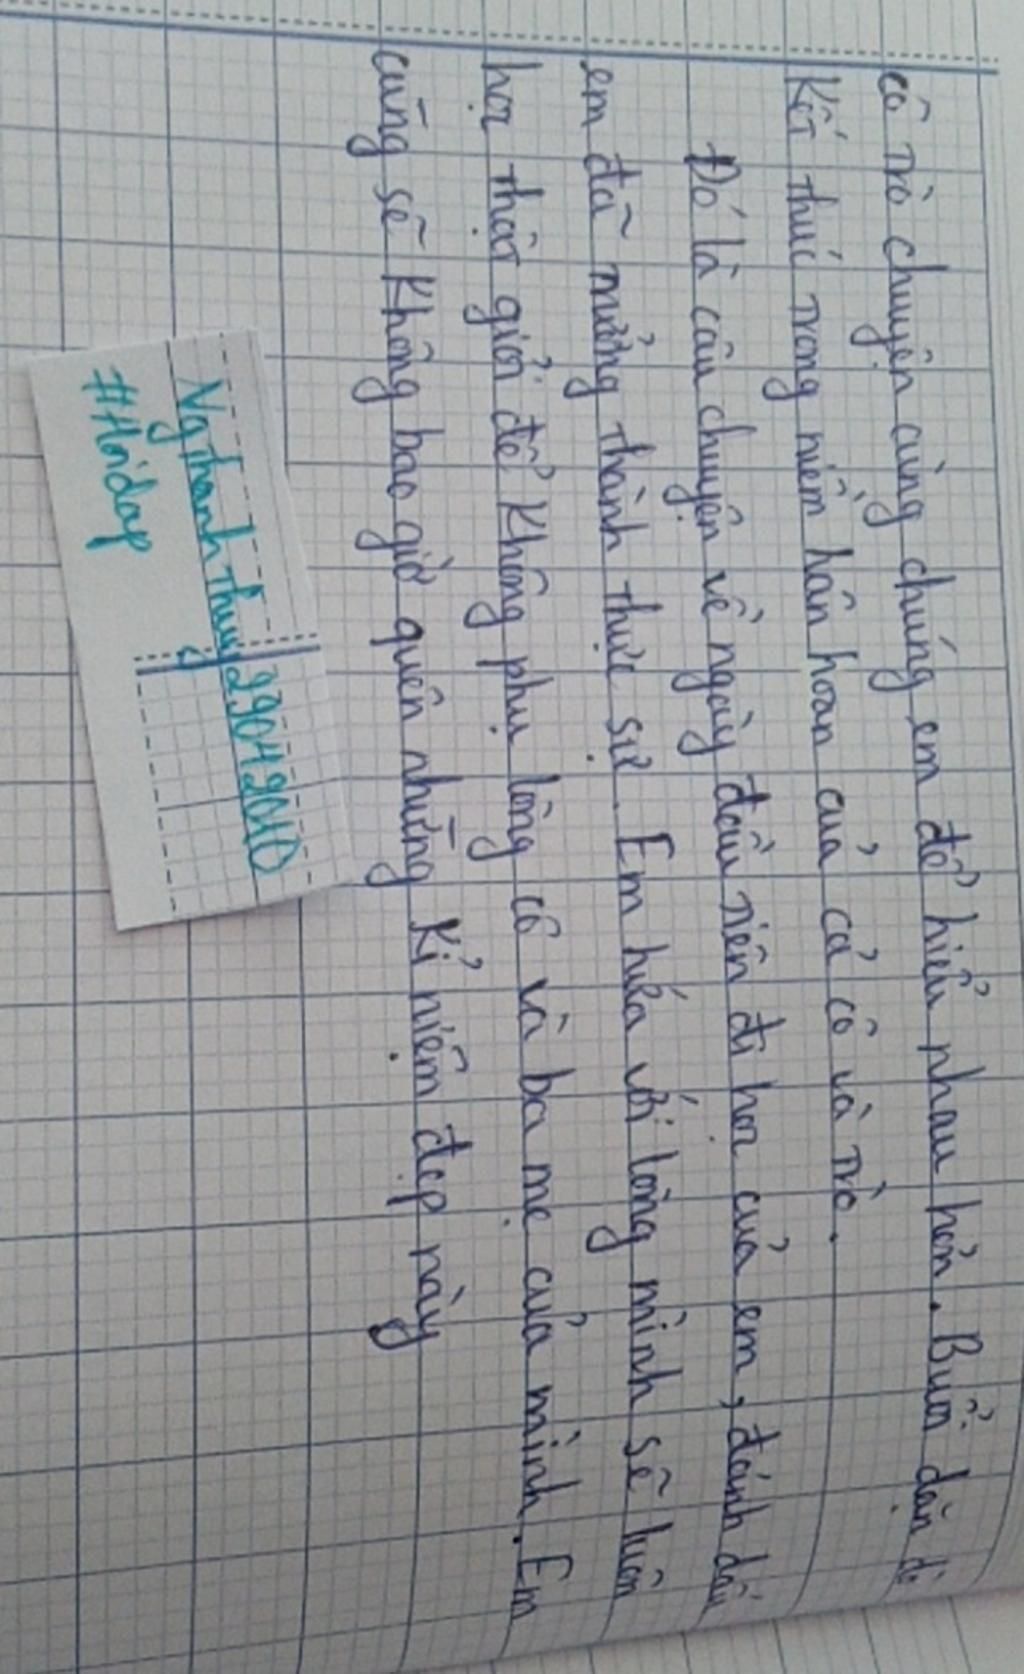 cô trò chuyện cùng chúng em để hiểu nhau hơn. Buổi dặn dò
Kết thúc trong niềm hân hoan của cả cô và trò.
Đó là câu chuyện về ngày đầu tiên đi học của em, đánh dấu
em đã trưởng thành thực sự. Em hứa với lòng mình sẽ luôn
học thật giỏi để không phụ lòng cô và ba mẹ của mình. Em
cũng sẽ không bao giờ quên những kỉ niệm đẹp này
Ngthanhthuy29042010
#Hoidap